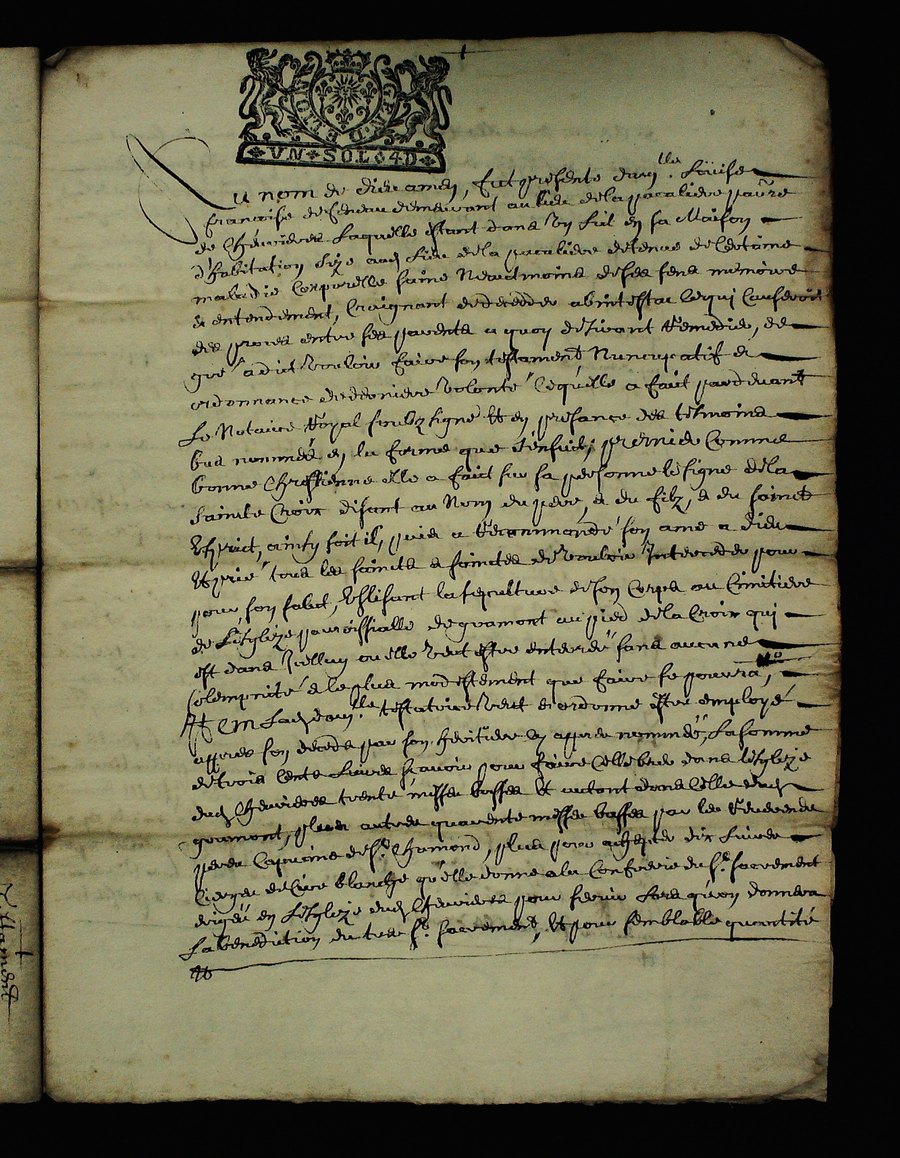 GEN. D. LIO
VN SOL 4D
Au nom de dieu amen, fut presente dam.lle Loüise
francoise de seneau demeurant au lieu de la pacaliere parre
de Chevrieres laquelle estant dans un lit en sa Maison
d'habitation size aud lieu de la pacaliere detenue de
maladie Corporelle saine Neantmoins de ses sens memoire
& entendement, Craignant de decedder abintestat ce qui Causeroit
des proces entre ses parents a quoy desirant remedier, de
gré a dit vouloir faire son testament Nuncupatif et
ordonnance de derniere volonté lequelle a fait pardevant
Le Notaire Royal soubzsigné Et en presance des tesmoins
bas nommés en la forme que s'ensuit, premier Comme
bonne Chrestienne elle a fait sur sa personne le signe de la
sainte Croix disant au Nom du pere, & du filz, & du sainct
Esprict, ainsy soit il, puis a recommandé son ame a dieu
Et prié tous les saincts & sainctes de vouloir Interceder pour
pour son salut, Eslisant la sepulture de son Corps au Cimitiere
de L'esglize paroissialle de gramont au pied de la Croix qui
est dans Icelluy ou elle veut estre enterré sans aucune
solempnité & le plus modestement que faire se pourra,
Item Lad dam.lle testatrice veut et ordonne estre employé
appres son deceds par son heritiere cy appres nommée, La somme
de trois Cents Livres scavoir pour faire Cellebrer dans l'esglize
dud Chevrieres trente messes basses Et autant dans Celle dud
gramont, plus autres quarente messes basses par les Reverends
peres Capucins de St. Chamond, plus pour achepter dix Livres
Cierges de Cire blanche qu'elle donne a la Confrerie du St. sacrement
erigée en L'esglize dud Chevrieres pour servir Lors qu'on donnera
La benediction du tres St. sacrement, Et pour semblable quantité